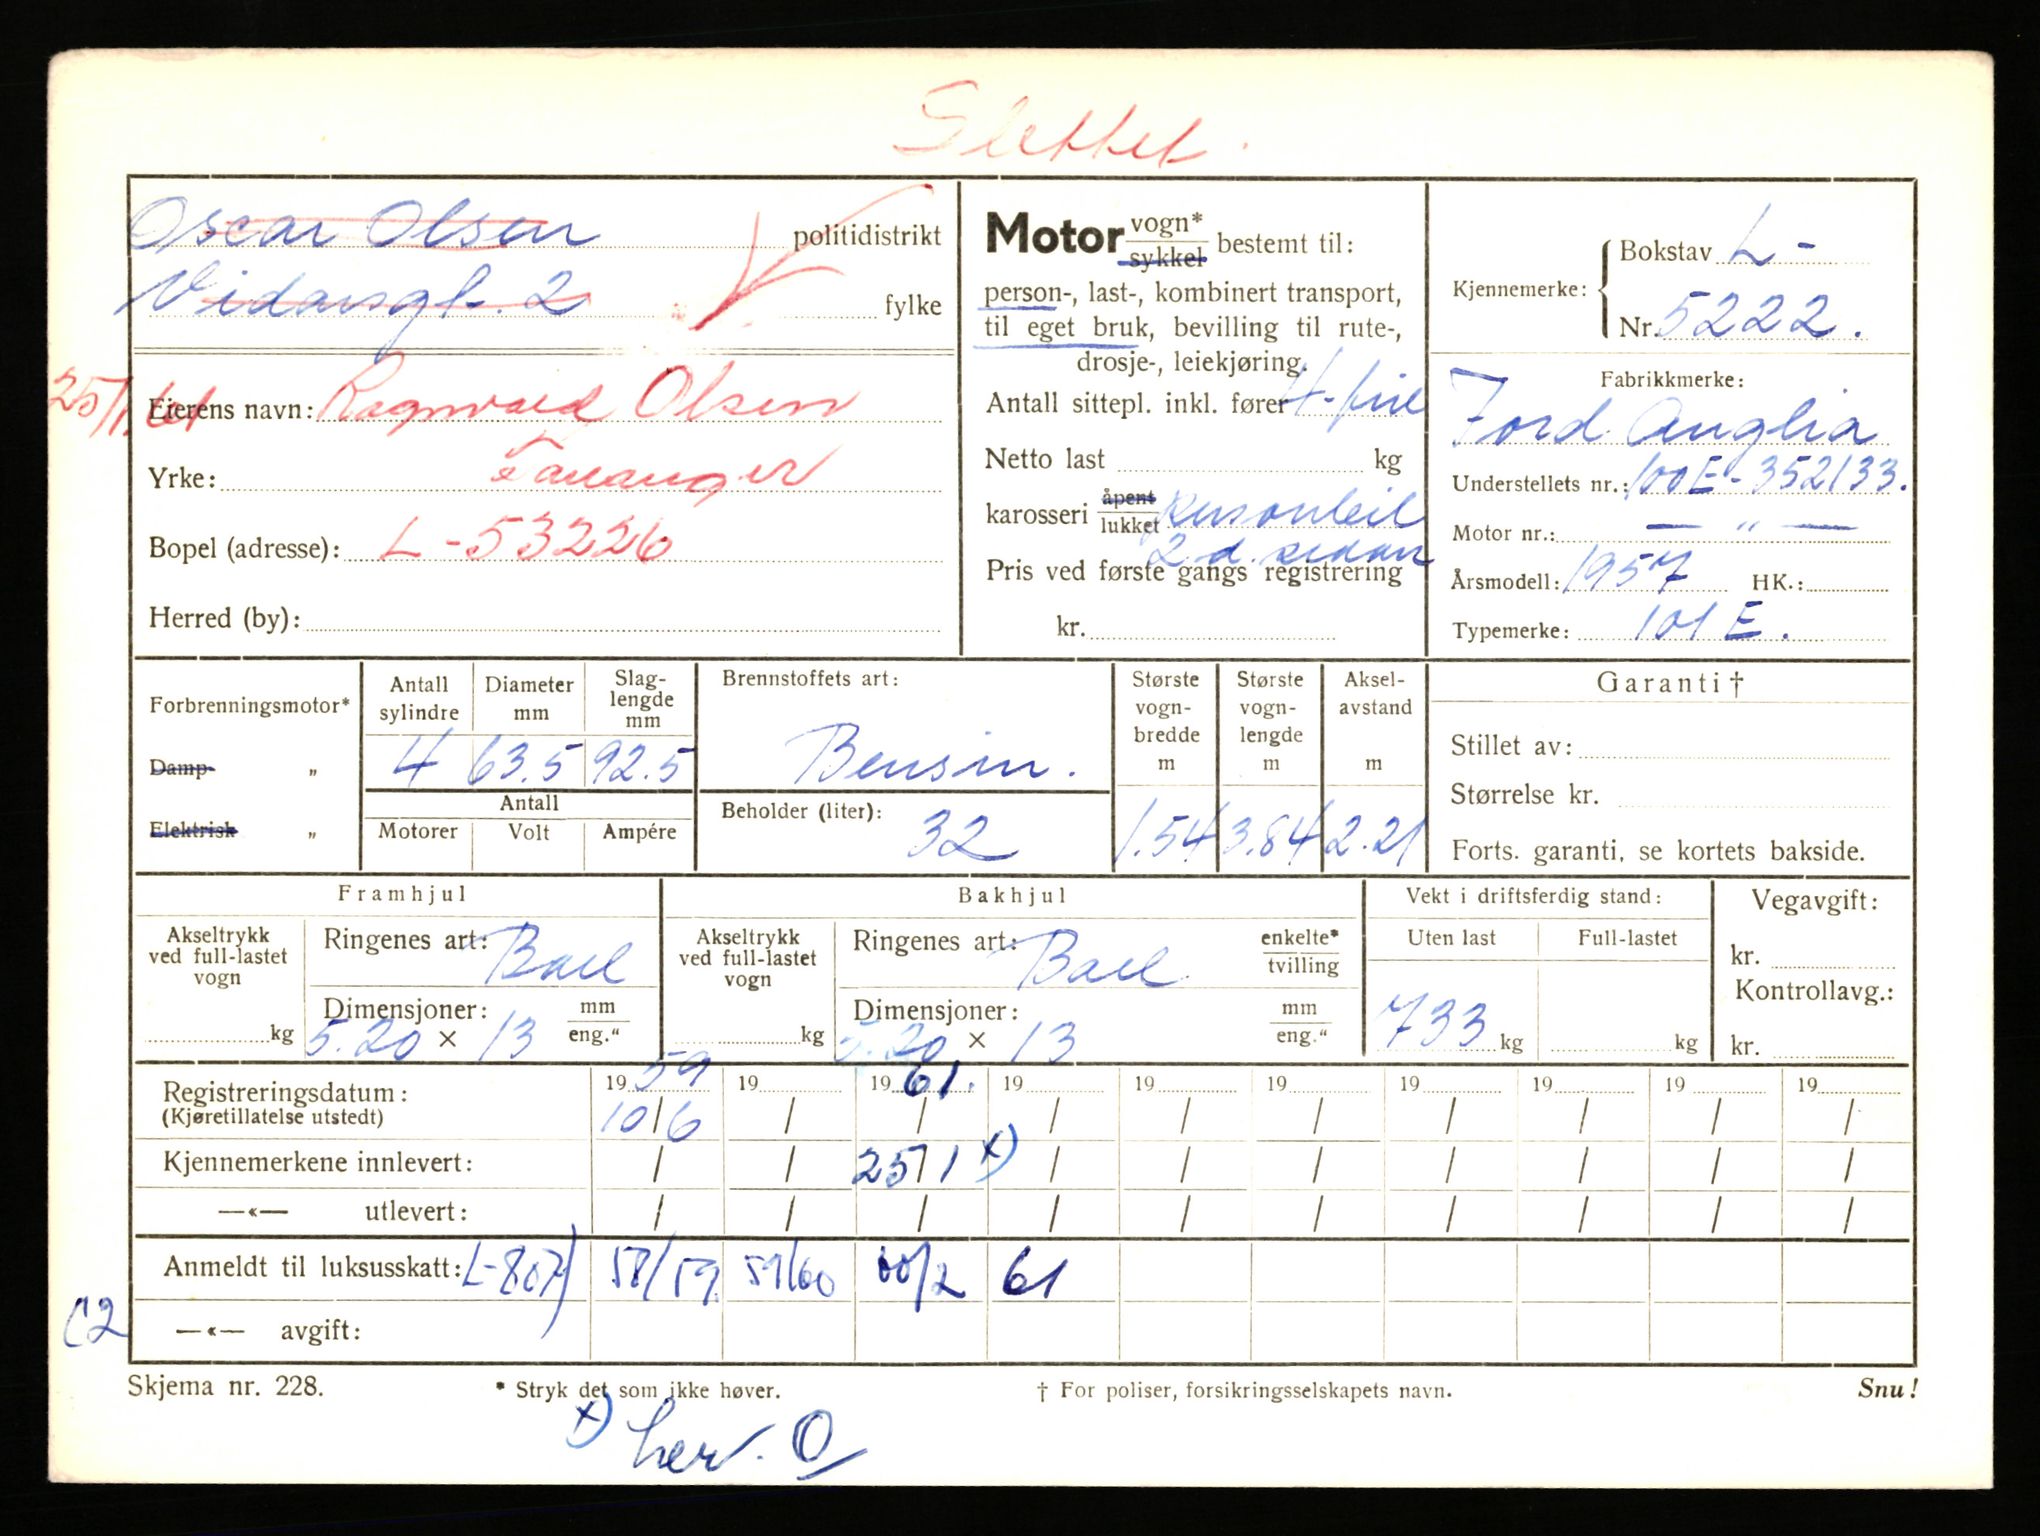 Slettet.
Oscar Olsen politidistrikt
Vidarsgt. 2 fylke
25/1.61 Eierens navn: Ragnvald Olsen
Yrke: Tananger
Bopel (adresse): L-53226
Herred (by):
Motor vogn* sykkel bestemt til:
person-, last-, kombinert transport,
til eget bruk, bevilling til rute-,
drosje-, leiekjøring.
Antall sittepl. inkl. fører 4-fire
Netto last kg
karosseri åpent lukket personbil
2 d. sedan
Pris ved første gangs registrering
kr.
Kjennemerke: Bokstav L-
Nr. 5222.
Fabrikkmerke:
Ford Anglia
Understellets nr.: 100E-352133.
Motor nr.: — „ —
Årsmodell: 1957 HK.:
Typemerke: 101 E.
Forbrenningsmotor*
Damp- „
Elektrisk „
Antall sylindre
Diameter mm
Slag-lengde mm
4 63.5 92.5
Antall
Motorer Volt Ampére
Brennstoffets art:
Bensin.
Beholder (liter):
32
Største vogn-bredde m
1.54
Største vogn-lengde m
3.84
Aksel-avstand m
2.21
Garanti †
Stillet av:
Størrelse kr.
Forts. garanti, se kortets bakside.
Framhjul
Akseltrykk ved full-lastet vogn
kg
Ringenes art: Ball
Dimensjoner: mm
5.20 × 13 eng.“
Bakhjul
Akseltrykk ved full-lastet vogn
kg
Ringenes art: Ball enkelte* tvilling
Dimensjoner: mm
5.20 × 13 eng.“
Vekt i driftsferdig stand:
Uten last Full-lastet
733 kg kg
Vegavgift:
kr.
Kontrollavg.:
kr.
Registreringsdatum: 19 59 19 19 61. 19 19 19 19 19 19 19
(Kjøretillatelse utstedt) 10/6 / / / / / / / / /
Kjennemerkene innlevert: / / 25/1 x) / / / / / / /
—«— utlevert: / / / / / / / / / /
Anmeldt til luksusskatt: L-807) 58/59. 59/60 60/2 61
—«— avgift:
Skjema nr. 228. * Stryk det som ikke høver. † For poliser, forsikringsselskapets navn. Snu!
x) her. O